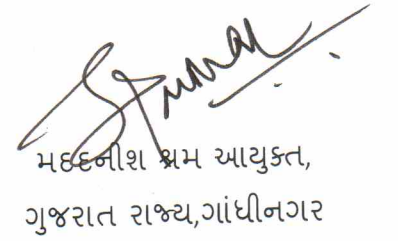 મદદનીશ શ્રમ આયુક્ત,
ગુજરાત રાજ્ય,ગાંધીનગર